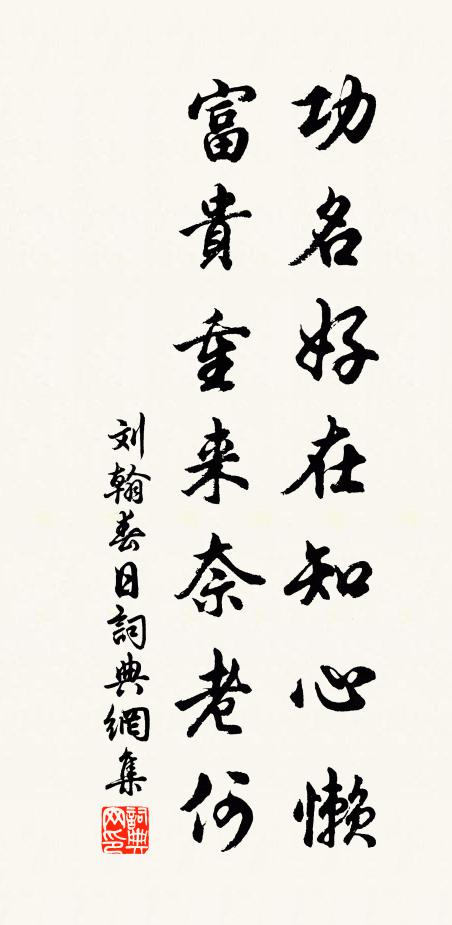 功名好在知心懒
富貴重来奈老何
刘翰春日詞典網集
詞典网印